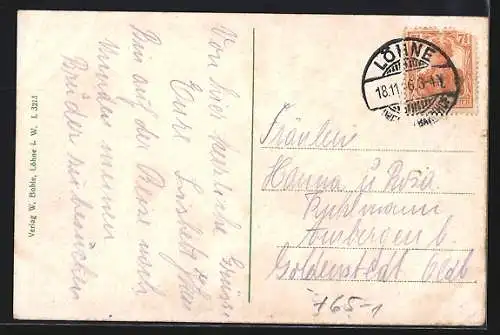 Von hier herzliche Grüsse
Eure Lisbeth
Bin auf der Reise nach
meinen
Bruder zu besuchen
Verlag W. Bohle, Löhne i. W. L 3213
7½
LÖHNE
18.11.16.3-4N.
Fräulein
Hanna u Rosa
Kuhlmann
Ambergen b.
Goldenstedt Oldb
765-1